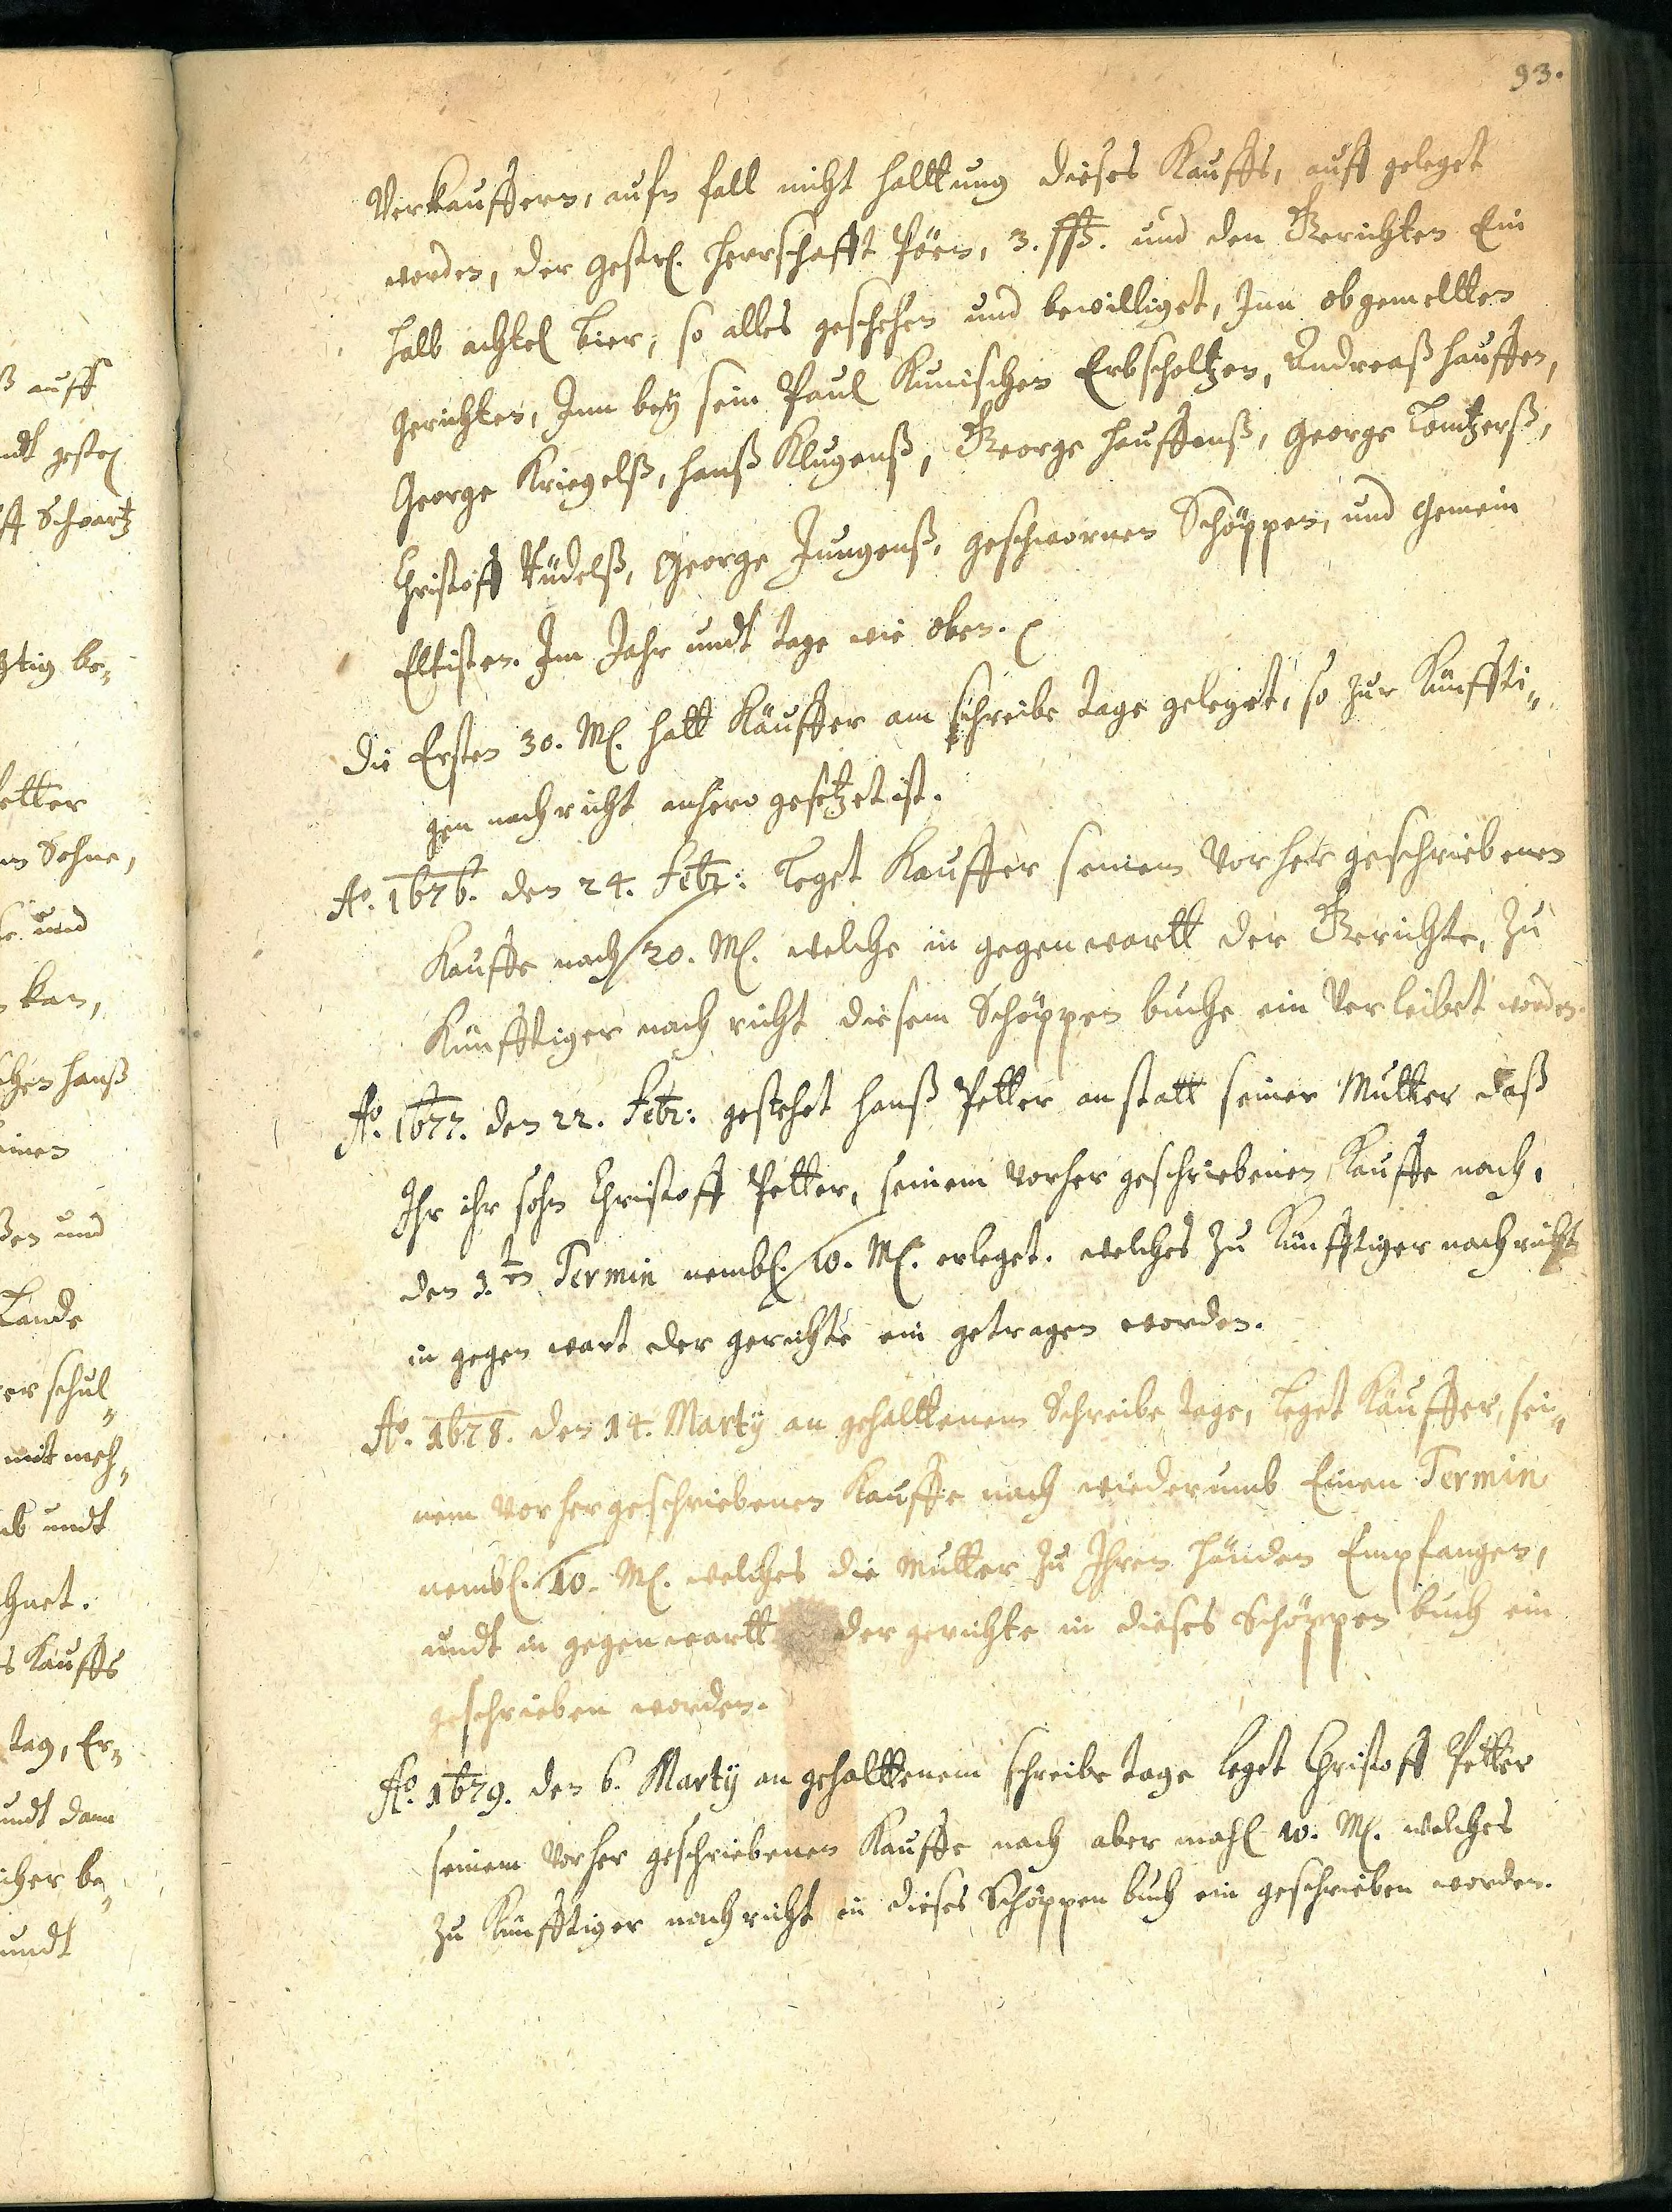 93.
Verkauffern, aufn fall nicht halttung dieses Kauffs, auff geleget
worden, der gestr. herrschafft Pöen, 3. ßß. und den Gerichten Ein
halb achtel bier, so alles geschehen und bewilliget, Inn obgemeltten
gerichten, Inn beÿ sein Paul Kunischen Erbscholtzen, Andreaß hauffen,
George Kriegelß, hanß Klugenß, George hauffenß, George
Christoff George Jungenß, geschwornen Schöppen, und gemein
Eltisten. Im Jahr undt tage wie oben.
die Ersten 30. M. hatt Käuffer am schreibe tage geleget, so zur Künffti„
gen nachricht anhero gesetzet ist.
Ao. 1676. den 24. Febr: Leget Kauffer seinem Vorher geschriebenen
Kauffe nach 20. M. welche in gegenwartt der Gerichte, zu
Künfftiger nach richt diesem Schöppen buche ein Verleibet worden.
Ao. 1677. den 22. Febr: gestehet hanß Petter an statt seiner Mutter daß
Ihr ihr sohn Christoff Petter, seinem vorher geschriebenen Kauffe nach,
den 3.ten Termin nembl. 10. M. erleget. welches zu Künfftiger nachricht
in gegen wart der gerichte ein getragen worden.
Ao. 1678. den 14. Martÿ an gehalttenem Schreibe tage, Leget Käuffer, sei„
nem vorhergeschriebenen Kauffe nach wiederumb Einen Termin
nembl. 10. M. welches die Mutter zu Ihren händen Empfangen,
undt in gegenwartt der gerichte in dieses Schöppen buch ein
geschrieben worden.
Ao. 1679. den 6. Martÿ an gehalttenem schreibe tage leget Christoff Petter
seinem Vorher geschriebenen Kauffe nach aber mahl 10. M. welches
zu Künfftiger nachricht in dieses Schöppen buch ein geschrieben worden.